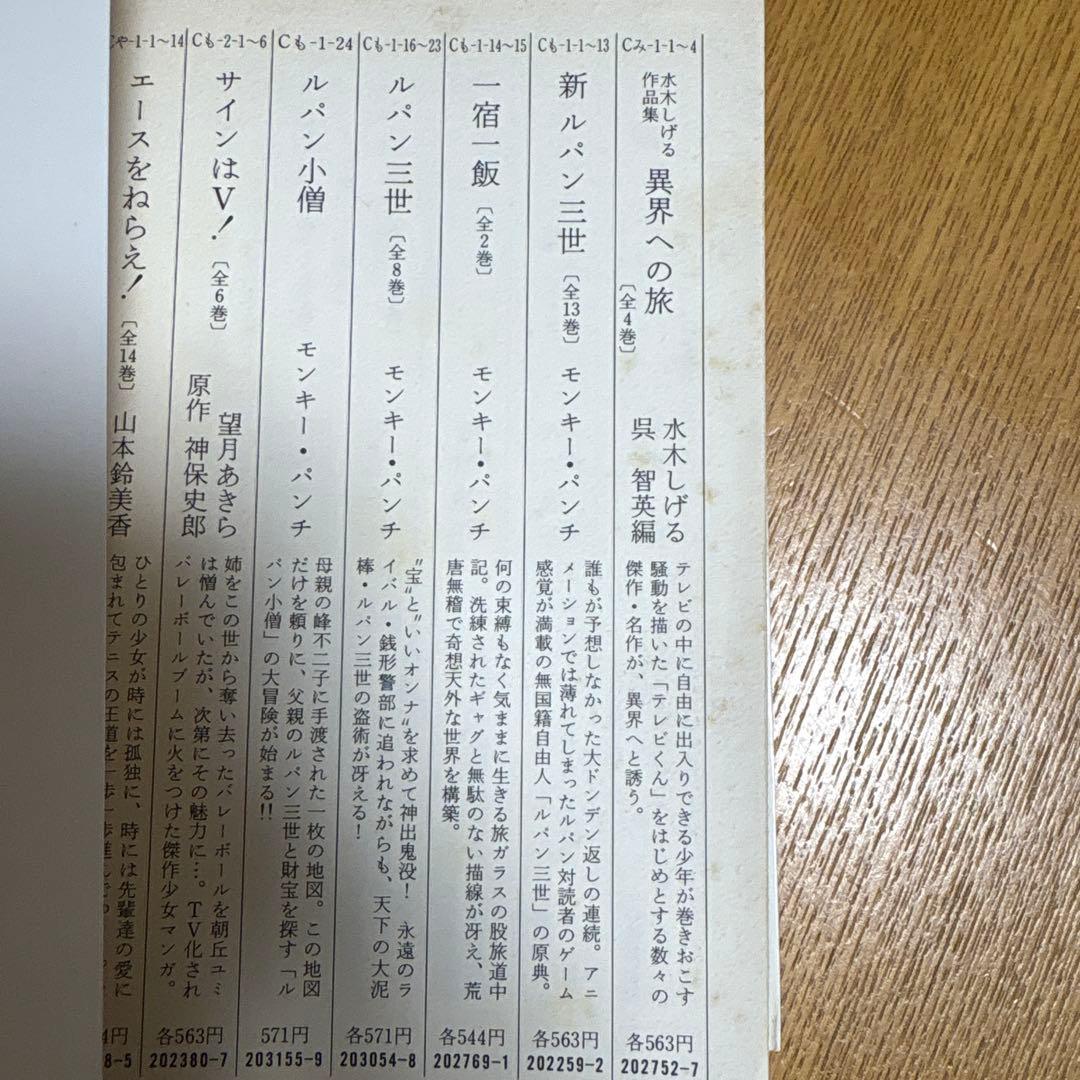 Cみ-1-1～4
水木しげる
作品集
異界への旅
〔全4巻〕
水木しげる
呉 智英編
テレビの中に自由に出入りできる少年が巻きおこす
騒動を描いた「テレビくん」をはじめとする数々の
傑作・名作が、異界へと誘う。
各563円
202752-7
Cも-1-1～13
新ルパン三世〔全13巻〕
モンキー・パンチ
誰もが予想しなかった大ドンデン返しの連続。アニ
メーションでは薄れてしまったルパン対読者のゲーム
感覚が満載の無国籍自由人「ルパン三世」の原典。
各563円
202259-2
Cも-1-14～15
一宿一飯〔全2巻〕
モンキー・パンチ
何の束縛もなく気ままに生きる旅ガラスの股旅道中
記。洗練されたギャグと無駄のない描線が冴え、荒
唐無稽で奇想天外な世界を構築。
各544円
202769-1
Cも-1-16～23
ルパン三世〔全8巻〕
モンキー・パンチ
〝宝〟と〝いいオンナ〟を求めて神出鬼没！ 永遠のラ
イバル・銭形警部に追われながらも、天下の大泥
棒・ルパン三世の盗術が冴える！
各571円
203054-8
Cも-1-24
ルパン小僧
モンキー・パンチ
母親の峰不二子に手渡された一枚の地図。この地図
だけを頼りに、父親のルパン三世と財宝を探す「ル
パン小僧」の大冒険が始まる!!
571円
203155-9
Cも-2-1～6
サインはV！〔全6巻〕
望月あきら
原作 神保史郎
姉をこの世から奪い去ったバレーボールを朝丘ユミ
は憎んでいたが、次第にその魅力に…。TV化され
バレーボールブームに火をつけた傑作少女マンガ。
各563円
202380-7
Cや-1-1～14
エースをねらえ！〔全14巻〕
山本鈴美香
ひとりの少女が時には孤独に、時には先輩達の愛に
包まれてテニスの王道を一歩一歩進んで
4円
8-5